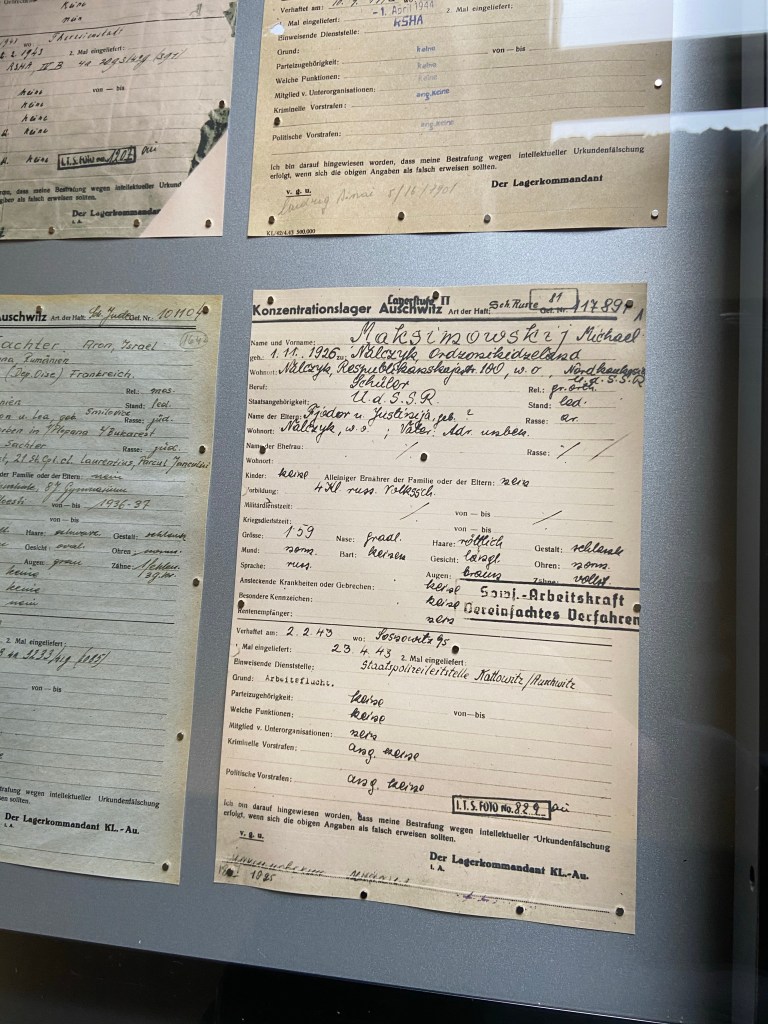 keine
wo Theresienstadt
2.2.1943 2. Mal eingeliefert:
RSHA, IV B 4a
keine von — bis
keine
keine
keine
keine I.T.S. FOTO No. 1207
dass meine Bestrafung wegen intellektueller Urkund
als falsch erweisen sollten.
Der Lagerkommandant
i. A.
Verhaftet am:
Mal eingeliefert: -1. April 1944 2. Mal eingeliefert:
Einweisende Dienststelle: RSHA
Grund: keine
Parteizugehörigkeit: keine von — bis
Welche Funktionen: keine
Mitglied v. Unterorganisationen: ang. keine
Kriminelle Vorstrafen:
Politische Vorstrafen: ang. keine
Ich bin darauf hingewiesen worden, dass meine Bestrafung wegen intellektueller Urkundenfälschung
erfolgt, wenn sich die obigen Angaben als falsch erweisen sollten.
v. g. u. Der Lagerkommandant
KL/42/4.43 500.000
uschwitz Art der Haft: Jude Gef. Nr.: 101104
achter Aron, Israel
Rumänien
Frankreich.
Rel.: mos.
Stand: led.
Rasse: jüd.
Rasse: jüd.
er Familie oder der Eltern: nein
von — bis 1936-37
von — bis
Haare: schwarz Gestalt: schlank
Gesicht: oval Ohren:
Augen: grau Zähne:
keine
keine
nein
2. Mal eingeliefert:
von — bis
wegen intellektueller Urkundenfälschung
en sollten.
Der Lagerkommandant KL.-Au.
i. A.
Lagerstufe II
Konzentrationslager Auschwitz Art der Haft: Sch. Russe 81 Gef. Nr.: 117891
Name und Vorname: Maksimowskij Michael
geb.: 1.11.1926 zu: Nalczyk, Ordzonikidzeland
Wohnort: Nalczyk, Respublikanskajastr 180, w.o., Nordkaukasus
Beruf: Schüler U.d.S.S.R Rel.: gr. orth.
Staatsangehörigkeit: U.d.S.S.R. Stand: led.
Name der Eltern: Fjodor u. Justinija, geb. ? Rasse: ar.
Wohnort: Nalczyk, w.o.; Vater: Adr. unbek.
Name der Ehefrau: / Rasse: /
Wohnort:
Kinder: keine Alleiniger Ernährer der Familie oder der Eltern: nein
Vorbildung: 4 Kl. russ. Volkssch.
Militärdienstzeit: / von — bis /
Kriegsdienstzeit: von — bis
Grösse: 159 Nase: gradl. Haare: rötlich Gestalt: schlank
Mund: norm. Bart: keinen Gesicht: längl. Ohren: norm.
Sprache: russ. Augen: braun Zähne: vollst.
Ansteckende Krankheiten oder Gebrechen: keine
Sowj.-Arbeitskraft
Besondere Kennzeichen: keine
Vereinfachtes Verfahren
Rentenempfänger: nein
Verhaftet am: 2.2.43 wo: Sosnowitz
Mal eingeliefert: 23.4.43 2. Mal eingeliefert:
Einweisende Dienststelle: Staatspolizeileitstelle Kattowitz/Auschwitz
Grund: Arbeitsflucht.
Parteizugehörigkeit: keine von—bis
Welche Funktionen: keine
Mitglied v. Unterorganisationen: nein
Kriminelle Vorstrafen: ang. keine
Politische Vorstrafen: ang. keine
I.T.S. FOTO No. 829
Ich bin darauf hingewiesen worden, dass meine Bestrafung wegen intellektueller Urkundenfälschung
erfolgt, wenn sich die obigen Angaben als falsch erweisen sollten.
v. g. u.
Der Lagerkommandant KL.-Au.
i. A.